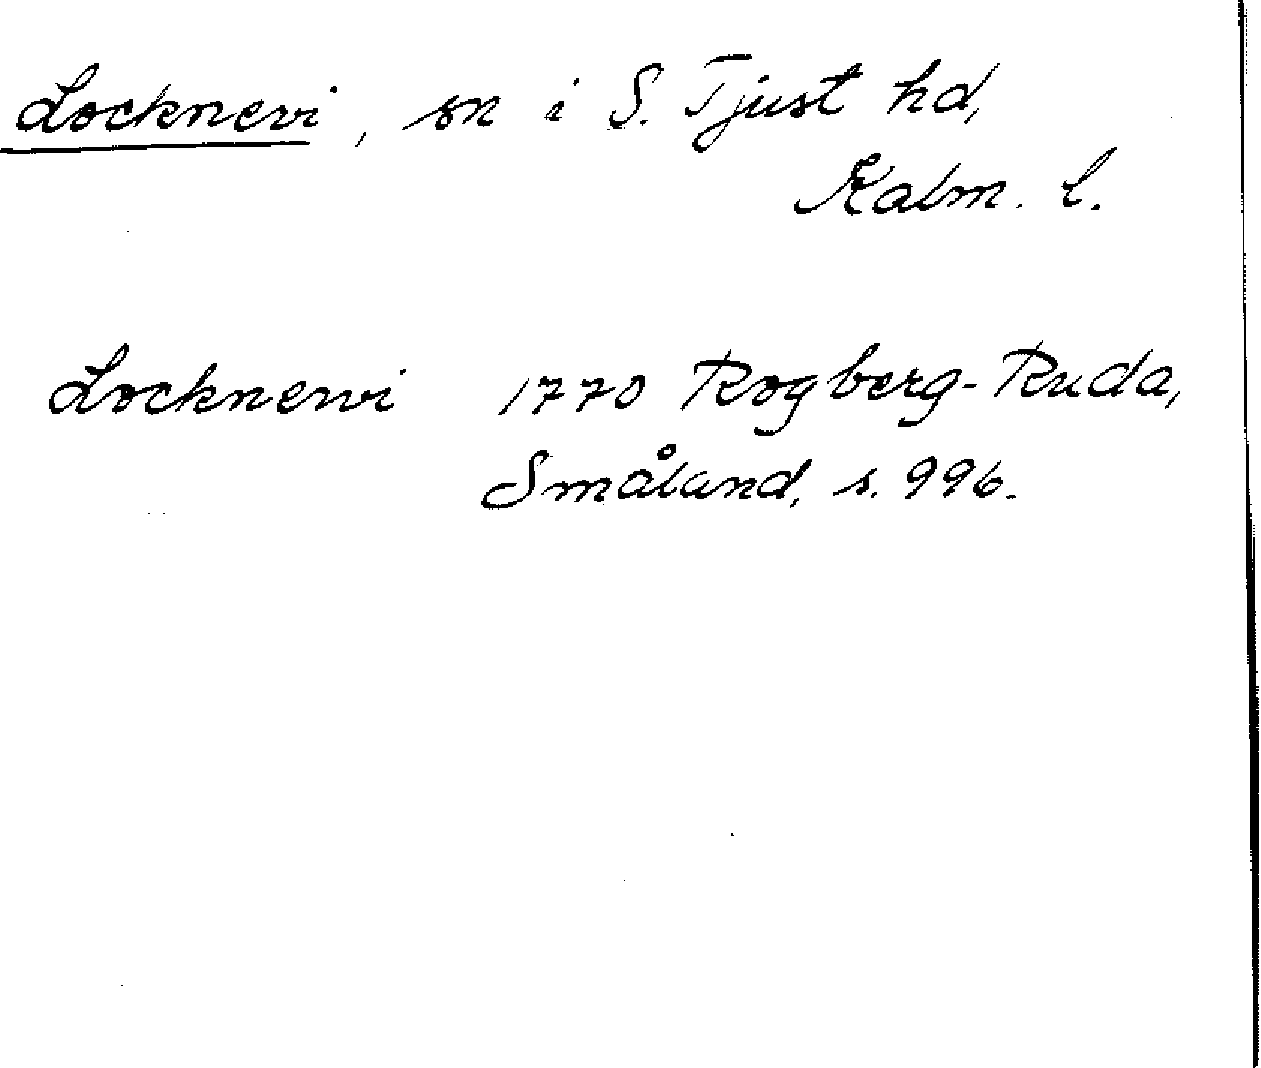 Locknevi, sn i S. Tjust hd,
Kalm. l.
Locknewi 1770 Rogberg-Ruda,
Småland, s. 996.